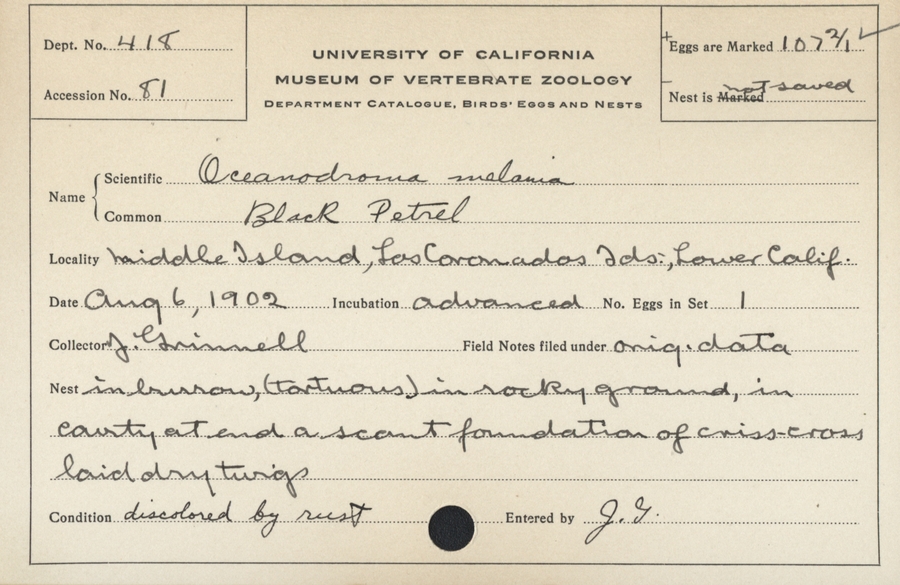 Dept. No. 418
Accession No. 81
UNIVERSITY OF CALIFORNIA
MUSEUM OF VERTEBRATE ZOOLOGY
DEPARTMENT CATALOGUE, BIRDS' EGGS AND NESTS
Eggs are Marked 107 2/1 ✓
Nest is Marked not saved
Name { Scientific Oceanodroma melania
Common Black Petrel
Locality Middle Island, Los Coronados Ids., Lower Calif.
Date Aug 6, 1902 Incubation advanced No. Eggs in Set 1
Collector J. Grinnell Field Notes filed under orig. data
Nest in burrow, (tortuous) in rocky ground, in
cavity at end a scant foundation of criss-cross
laid dry twigs
Condition discolored by rust Entered by J. G.